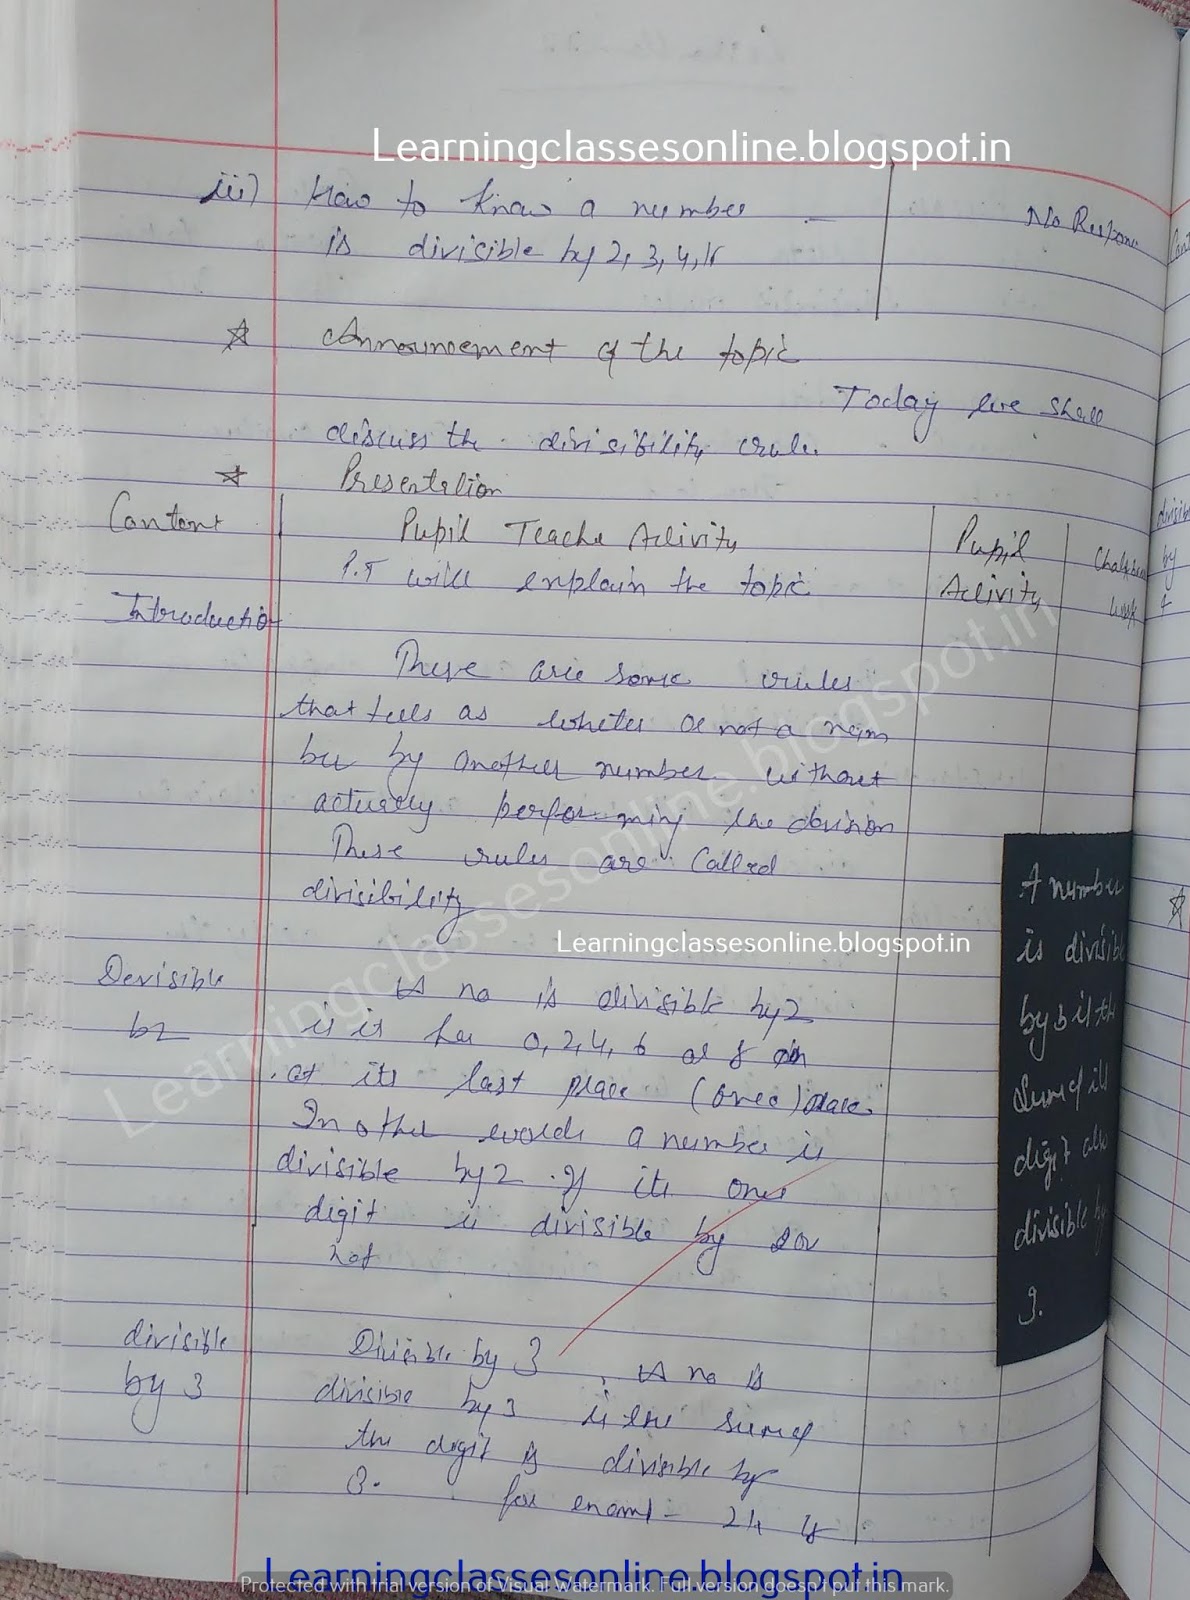 Learningclassesonline.blogspot.in
iii) How to know a number
is divisible by 2, 3, 4,
No Respone
Announcement of the topic
Today we shall
discuss the divisibility rule.
Presentation
Content
Pupil Teache Activity
Pupil
Activity
Chalkboard
work
P.T will explain the topic
Introduction
These are some rules
that tells as wheter or not a num
ber by another number without
actually performing the division
These rules are called
divisibility
Learningclassesonline.blogspot.in
Devisible
b2
A no is divisible by 2
if it has 0, 2, 4, 6 or 8
at its last place (ones) place
In other words a number is
divisible by 2 if its ones
digit is divisible by 2 or
not
divisible
by 3
Divisible by 3, A no is
divisible by 3 if the sum of
the digit is divisible by
3. for examl - 24 is
A number
is divisible
by 3 if the
Sum of its
digit also
divisible by
3.
divisible
by
4
Learningclassesonline.blogspot.in
Learningclassesonline.blogspot.in
Protected with trial version of Visual Watermark. Full version doesn't put this mark.